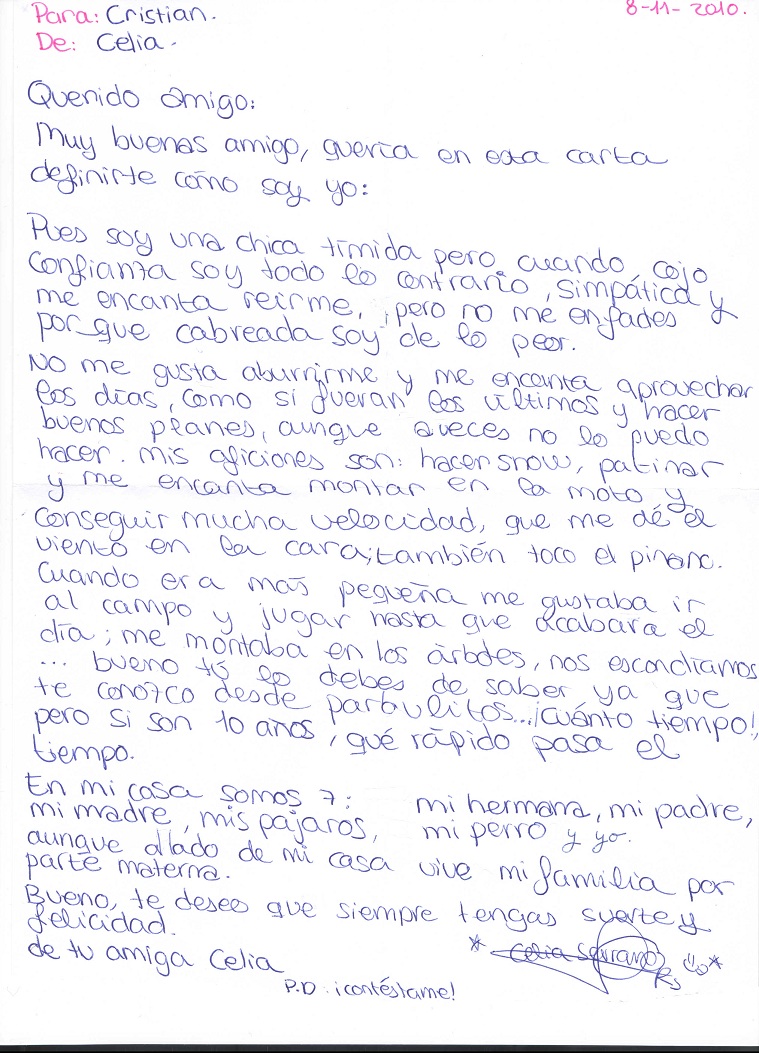 Para: Cristian.
8-11-2010.
De: Celia.
Querido amigo:
Muy buenas amigo, quería en esta carta
definirte cómo soy yo:
Pues soy una chica tímida pero cuando cojo
confianza soy todo lo contrario, simpática y
me encanta reirme, pero no me enfades
por que cabreada soy de lo peor.
No me gusta aburrirme y me encanta aprovechar
los días, como si fueran los últimos y hacer
buenos planes, aunque aveces no lo puedo
hacer. mis aficiones son: hacer snow, patinar
y me encanta montar en la moto y
conseguir mucha velocidad, que me dé el
viento en la cara; también toco el piano.
Cuando era más pequeña me gustaba ir
al campo y jugar hasta que acabara el
día; me montaba en los árboles, nos escondíamos
... bueno tú lo debes de saber ya que
te conozco desde parbulitos...¡cuánto tiempo!,
pero si son 10 años, qué rápido pasa el
tiempo.
En mi casa somos 7: mi hermana, mi padre,
mi madre, mis pajaros, mi perro y yo.
aunque allado de mi casa vive mi familia por
parte materna.
Bueno, te deseo que siempre tengas suerte y
felicidad.
de tu amiga Celia
* Celia Serrano *
P.D: ¡contéstame!